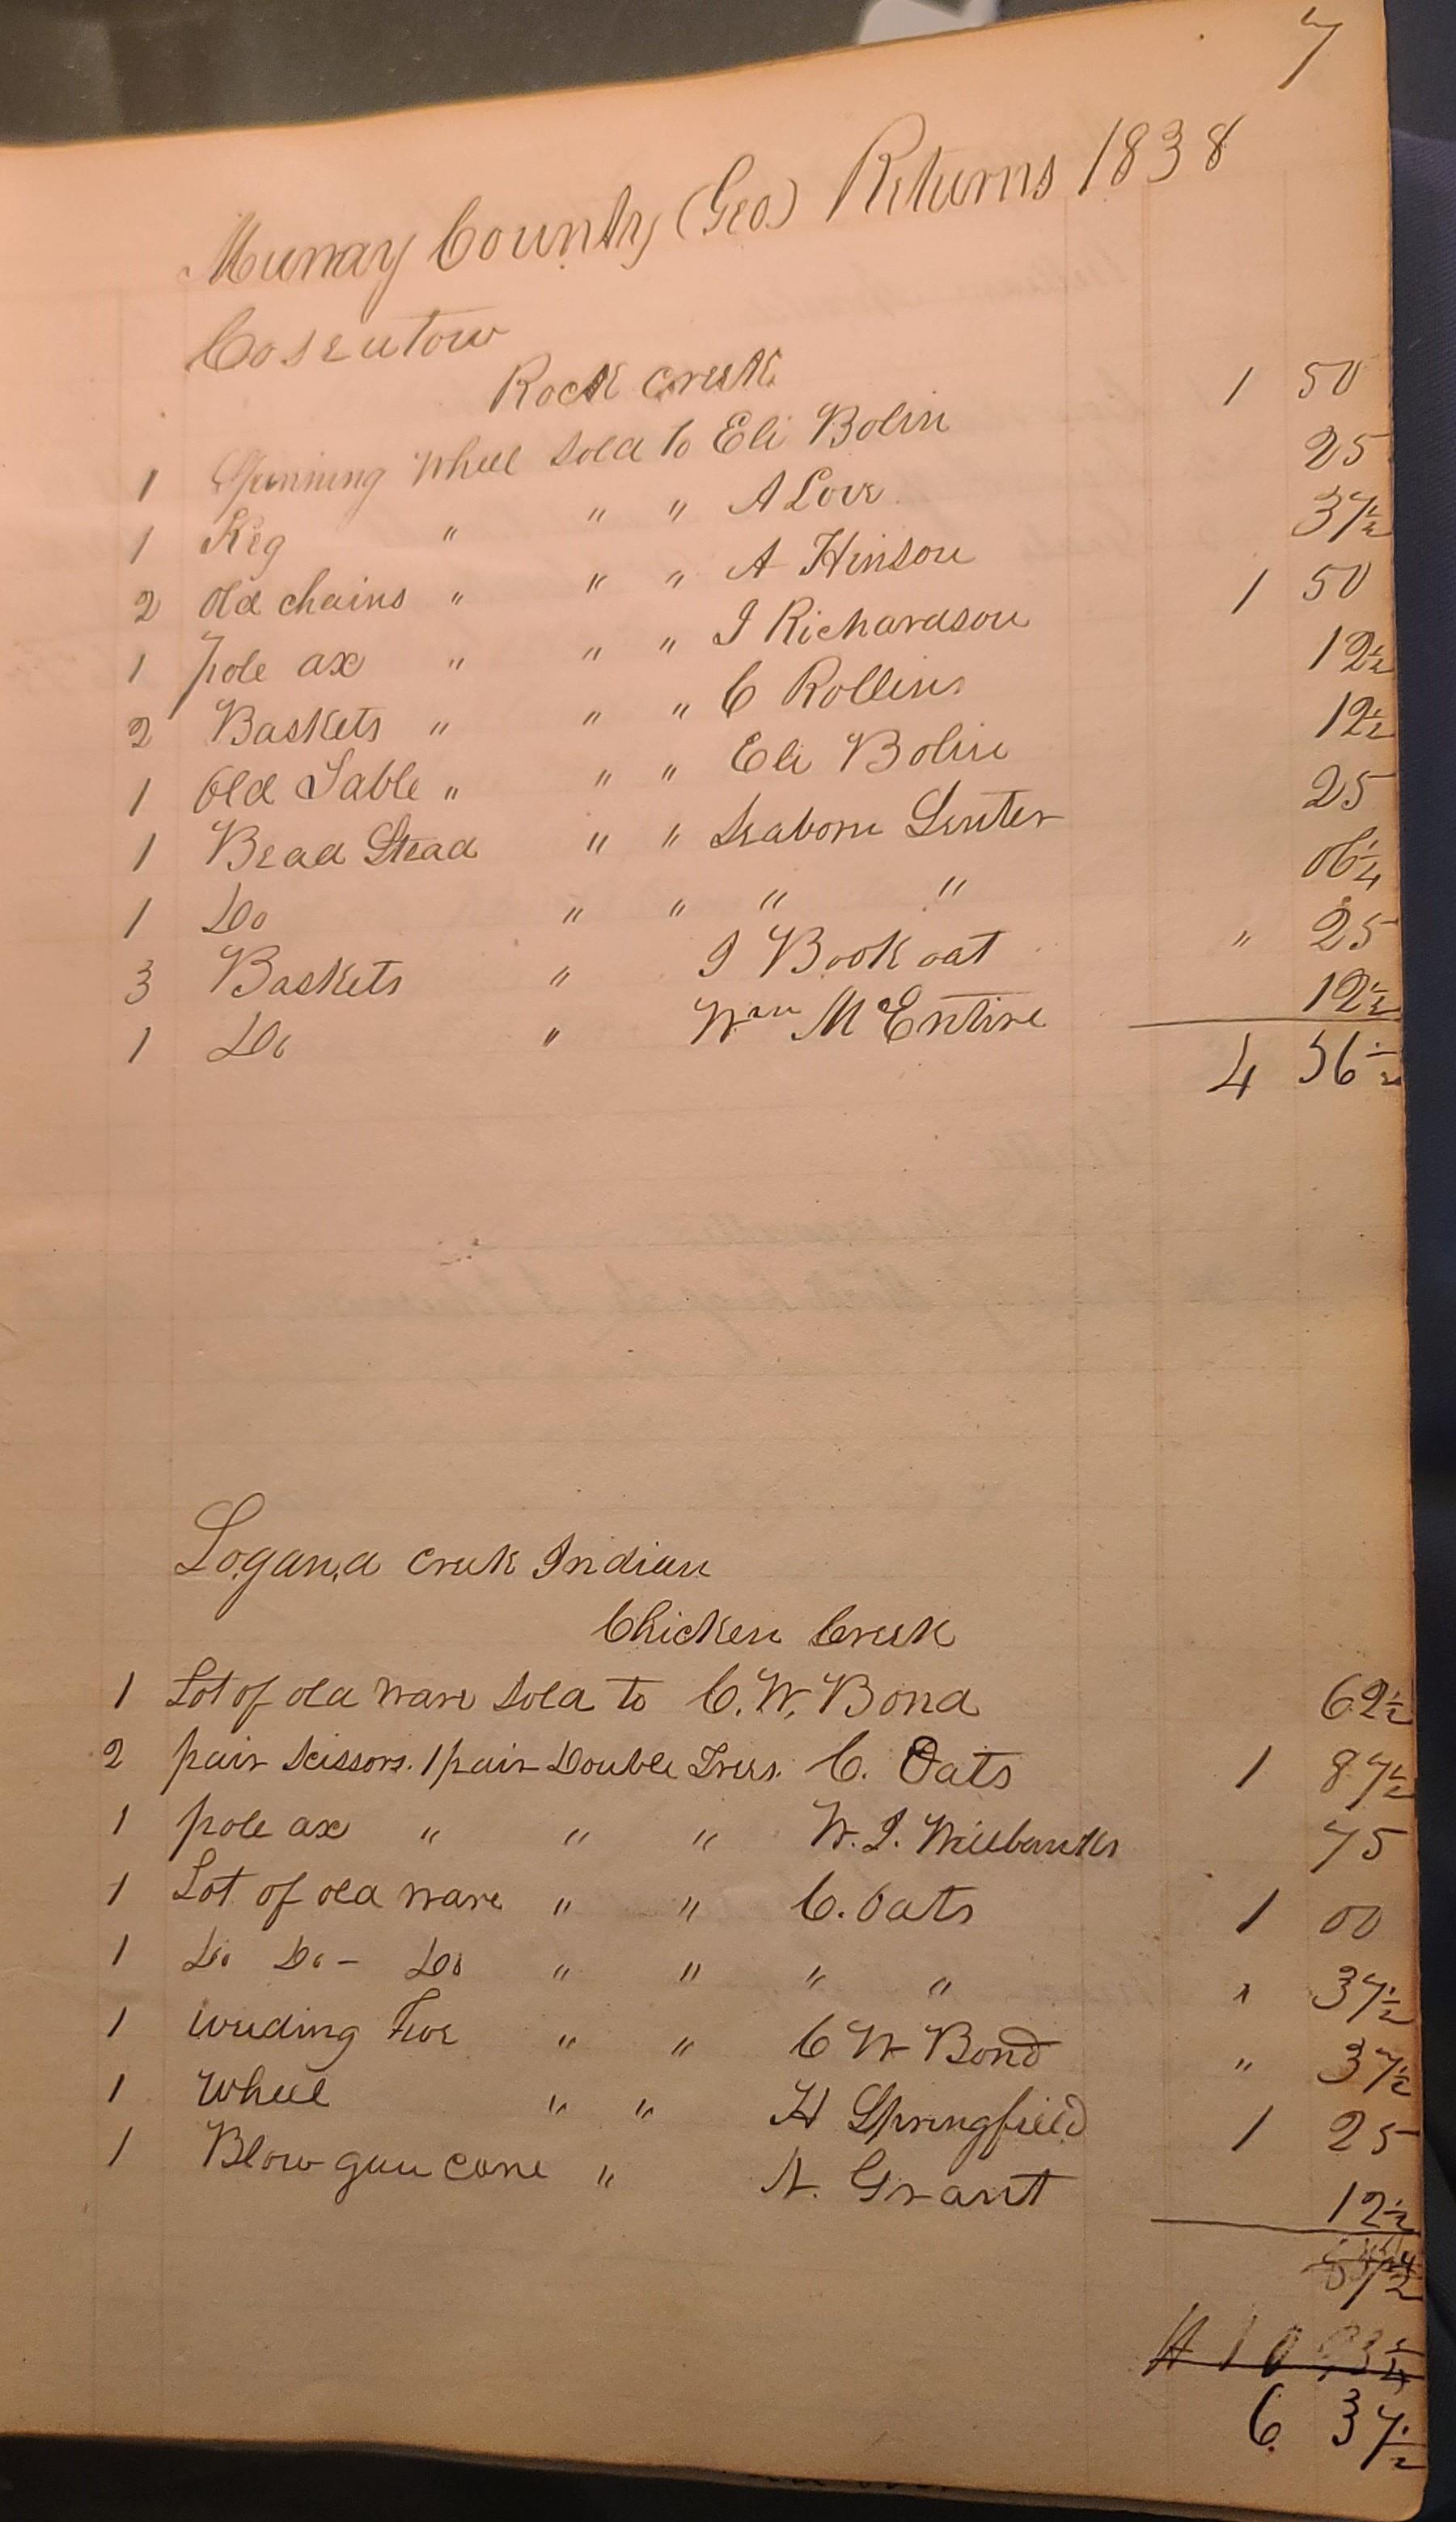 7
Murray County (Geo) Returns 1838
Cosentow
Rock Creek
1 Spinning Wheel Sold to Eli Bolin 1 50
1 Keg " " " A Love 25
2 Old chains " " " A Hinson 37½
1 pole ax " " " J Richardson 1 50
2 Baskets " " " C Rollins 12½
1 Old Table " " " Eli Bolin 12½
1 Bead Stead " " Seaborn Senter 25
1 Do " " " " 06¼
3 Baskets " J Bookoat " 25
1 Do " Wm McEntire 12½
4 56½
Logana creek Indian
Chicken Creek
1 Lot of old ware Sold to C. W. Bond 62½
2 pair Scissors. 1 pair Double Trees. C. Oats 1 87½
1 pole ax " " " W. J. Willbanks 75
1 Lot of old ware " " C. Oats 1 00
1 Do Do - Do " " " " " 37½
1 weeding hoe " " C W Bond " 37½
1 Wheel " " H Springfield 1 25
1 Blow gun cane " N. Grant 12½
6 37½